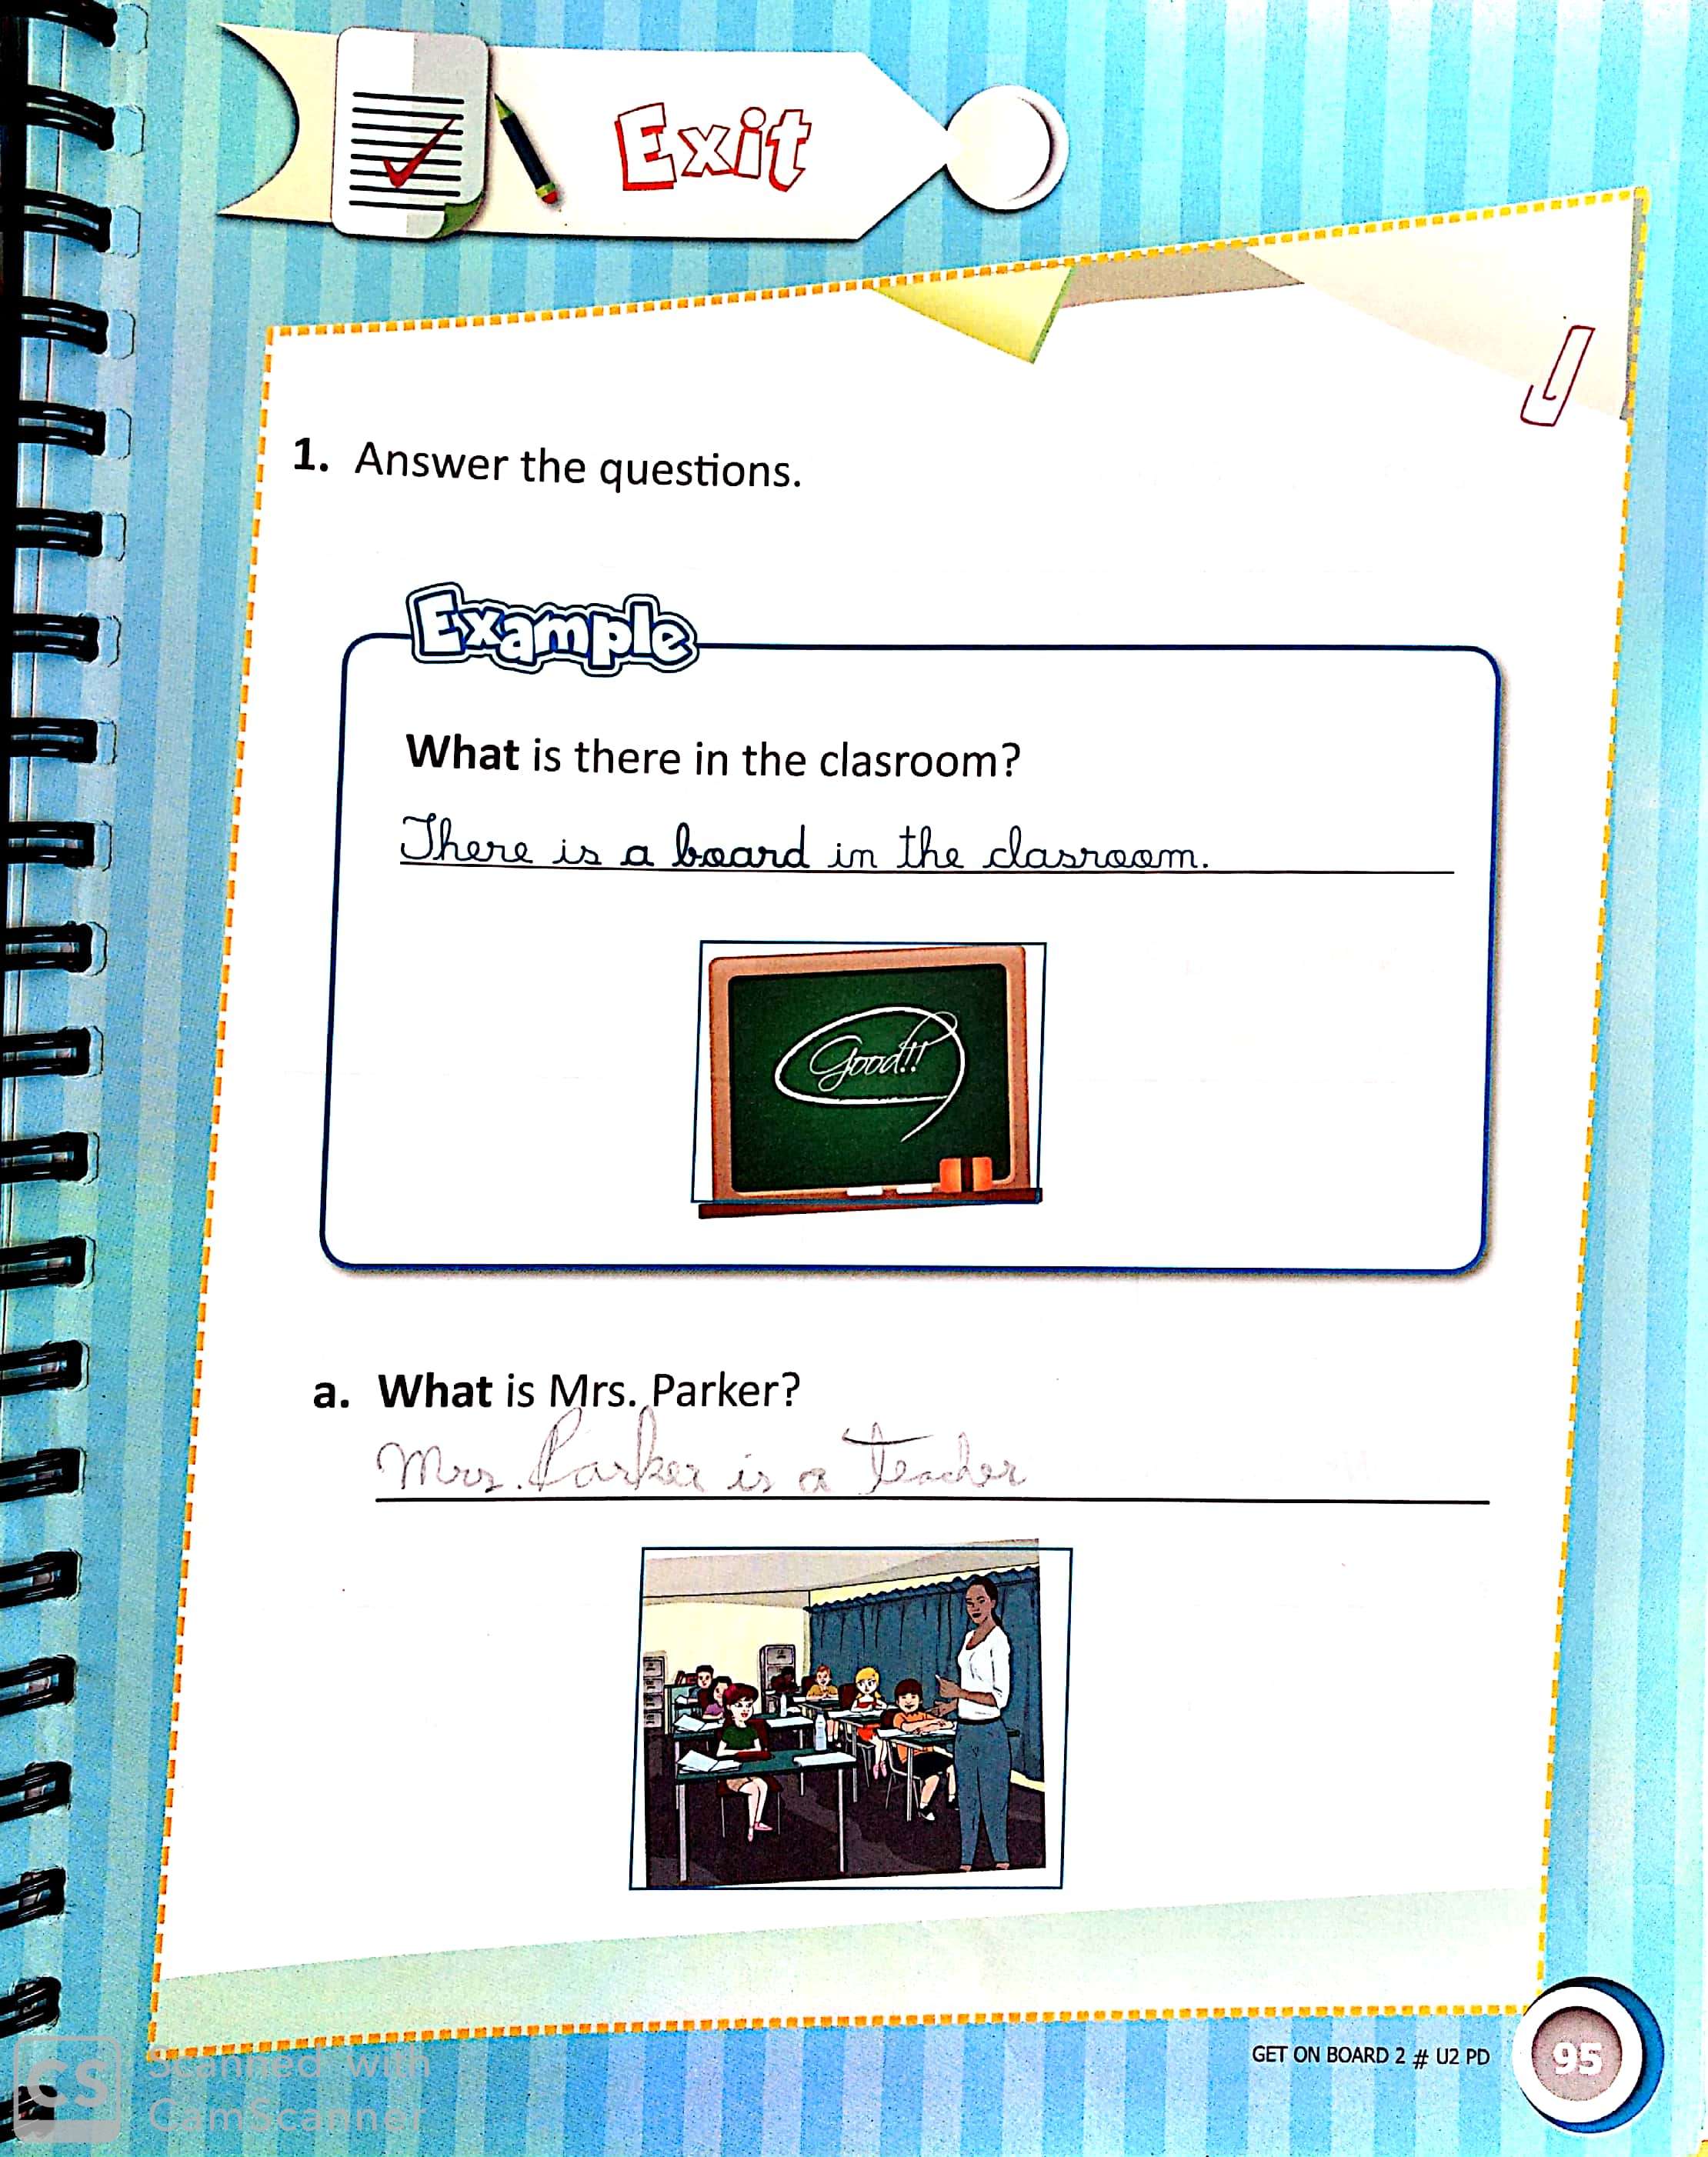 Exit
1. Answer the questions.
Example
What is there in the clasroom?
There is a board in the clasroom.
Good!!
a. What is Mrs. Parker?
Mrs. Parker is a teacher
GET ON BOARD 2 # U2 PD
95
CS
Scanned with
CamScanner